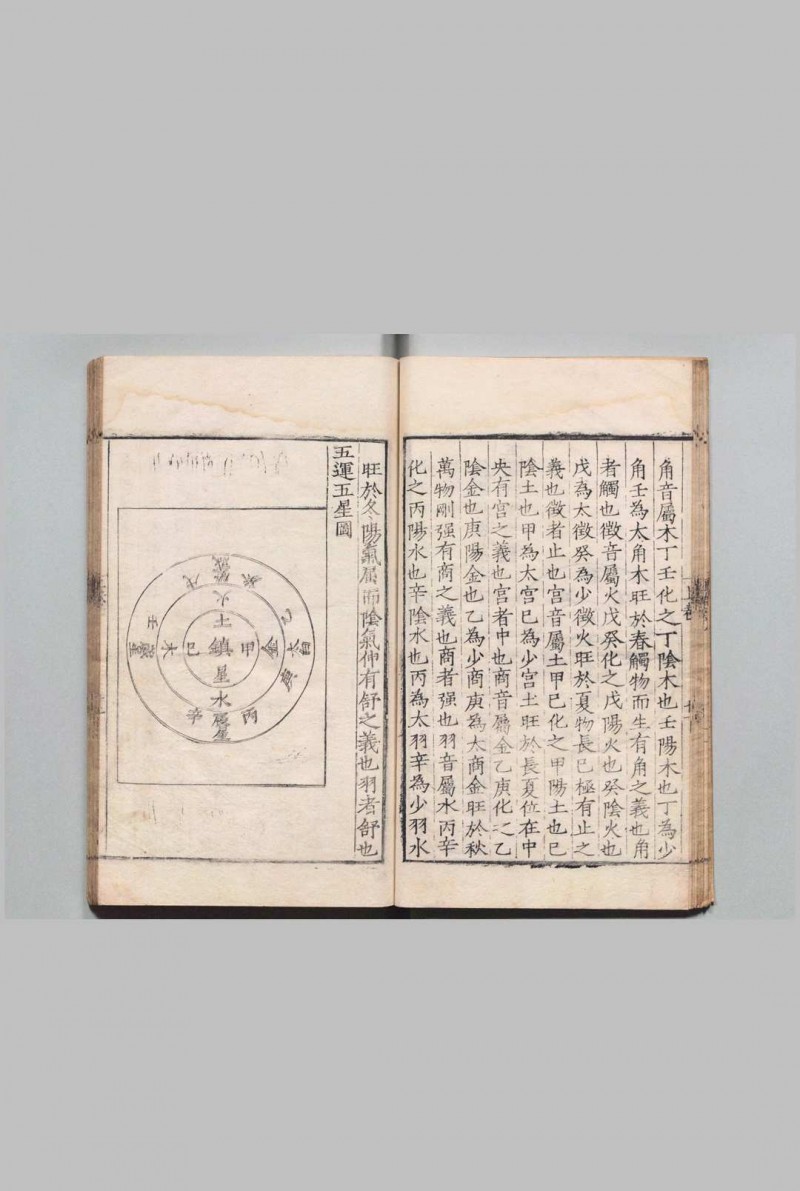 角音屬木丁壬化之丁陰木也壬陽木也丁為少
角壬為太角木旺於春觸物而生有角之義也角
者觸也徵音屬火戊癸化之戊陽火也癸陰火也
戊為太徵癸為少徵火旺於夏物長已極有止之
義也徵者止也宮音屬土甲巳化之甲陽土也巳
陰土也甲為太宮巳為少宮土旺於長夏位在中
央有宮之義也宮者中也商音屬金乙庚化之乙
陰金也庚陽金也乙為少商庚為太商金旺於秋
萬物剛强有商之義也商者强也羽音屬水丙辛
化之丙陽水也辛陰水也丙為太羽辛為少羽水
旺於冬陽氣屈而陰氣伸有舒之義也羽者舒也
五運五星圖
戊
癸
火
土
鎮
星
甲
己
木
壬
金
乙
太白
庚
水
辰星
丙
辛